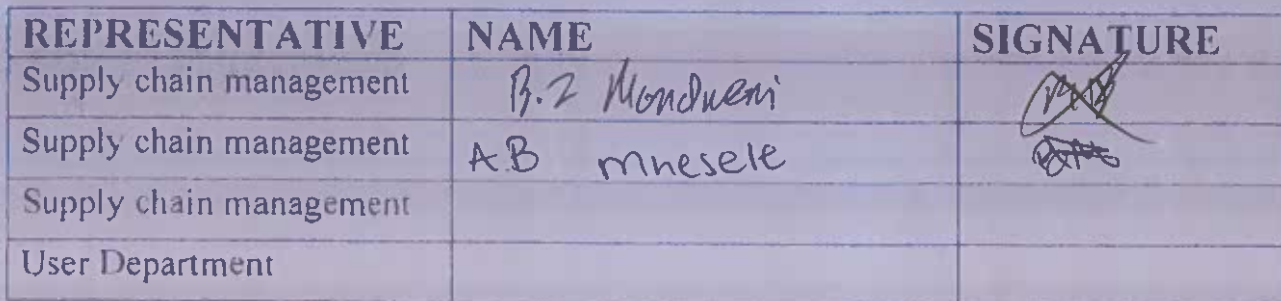 REPRESENTATIVE NAME SIGNATURE
Supply chain management B.Z Mondweni
Supply chain management A.B mnesele
Supply chain management
User Department